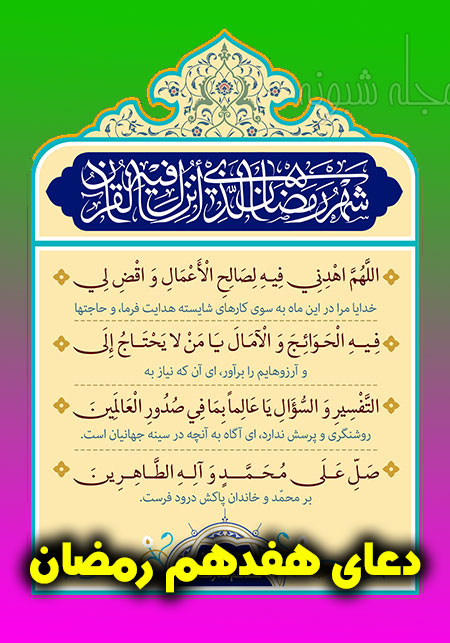 مجله شبونه
شهر رمضان الذی انزل فیه القرآن
اللَّهُمَّ اهْدِنِي فِيهِ لِصَالِحِ الْأَعْمَالِ وَ اقْضِ لِي
خدایا مرا در این ماه به سوی کارهای شایسته هدایت فرما، و حاجتها
فِيهِ الْحَوَائِجَ وَ الْآمَالَ يَا مَنْ لا يَحْتَاجُ إِلَى
و آرزوهایم را برآور، ای آن که نیاز به
التَّفْسِيرِ وَ السُّؤَالِ يَا عَالِماً بِمَا فِي صُدُورِ الْعَالَمِينَ
روشنگری و پرسش ندارد، ای آگاه به آنچه در سینه جهانیان است.
صَلِّ عَلَى مُحَمَّدٍ وَ آلِهِ الطَّاهِرِينَ
بر محمّد و خاندان پاکش درود فرست.
دعای هفدهم رمضان